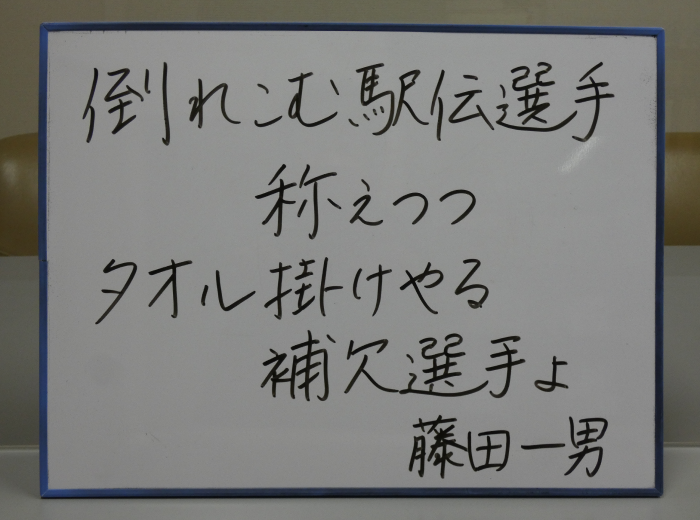 倒れこむ駅伝選手
称えつつ
タオル掛けやる
補欠選手よ
藤田一男